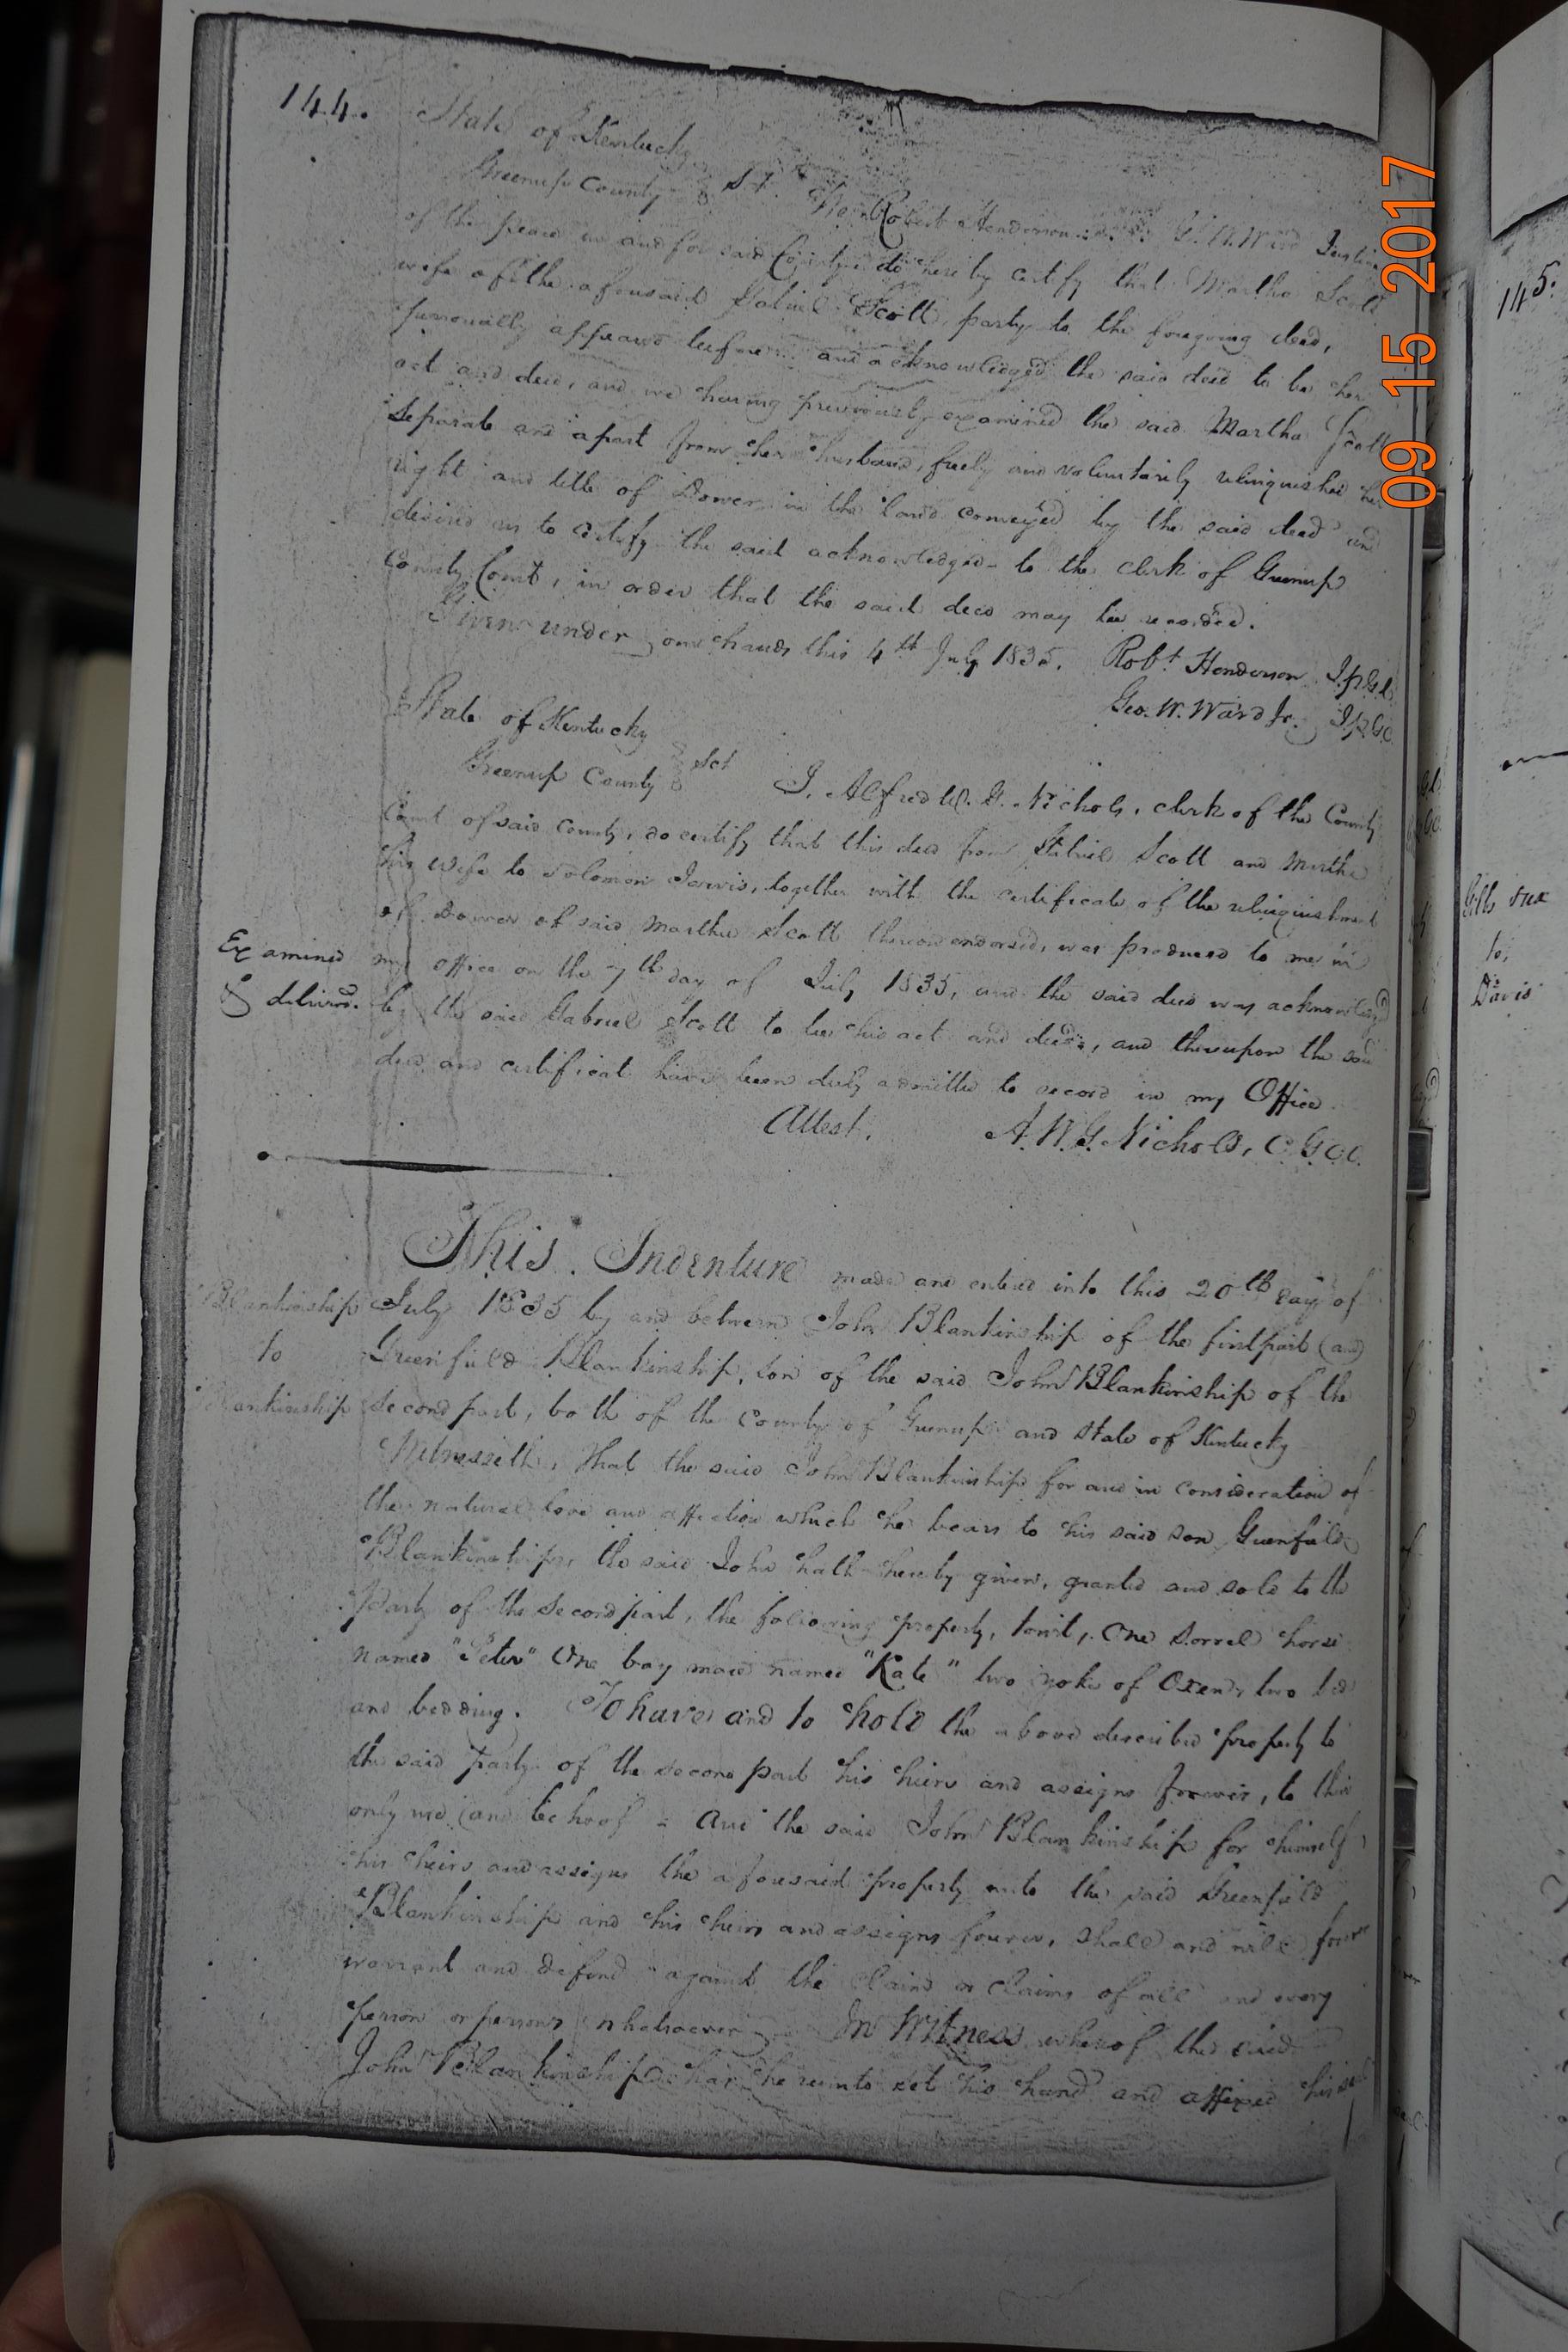 144.
State of Kentucky
Greenup County Sct. We Robert Henderson G. W. Ward Justices
of the peace in and for said County do hereby certify that Martha Scott
wife of the aforesaid Gabriel Scott, party to the foregoing deed,
personally appeared before and acknowledged the said deed to be her
act and deed, and we having previously examined the said Martha Scott
Separate and apart from her husband, freely and voluntarily relinquished her
right and title of Dower in the land conveyed by the said deed and
desired us to certify the said acknowledged to the clerk of Greenup
County Court, in order that the said deed may be recorded.
Given under our hands this 4th July 1835. Robt Henderson
Geo. W. Ward Jr.
State of Kentucky
Greenup County Sct
I, Alfred W. G. Nichols, clerk of the County
Court of said County, do certify that this deed from Gabriel Scott and Martha
his wife to Solomon Jarvis, together with the certificate of the relinquishment
of Dower of said Martha Scott thereon endorsed, was produced to me in
Examined my office on the 7th day of July 1835, and the said deed was acknowledged
& deliverd. by the said Gabriel Scott to be his act and deed, and thereupon the said
deed and certificate have been duly admitted to record in my Office
Attest. A. W. G. Nichols, C G C C.
This Indenture made and entered into this 20th day of
Blankinship July 1835 by and between John Blankinship of the first part and
to Greenfield Blankinship, son of the said John Blankinship of the
Blankinship Second part, both of the County of Greenup and State of Kentucky
Witnesseth, that the said John Blankinship for and in consideration of
the natural love and affection which he bears to his said son Greenfield
Blankinship, the said John hath hereby given, granted and sold to the
Party of the Second part, the following property, towit, One Sorrel horse
named "Peter" One bay mare named "Kate" two yoke of Oxen, two bed
and bedding. To have and to hold the above described property to
the said party of the second part his heirs and assigns forever, to their
only use and behoof - And the said John Blankinship for himself
his heirs and assigns the aforesaid property unto the said Greenfield
Blankinship and his heirs and assigns forever, shall and will
warrant and defend against the claim or claims of all and every
person or persons whatsoever In Witness whereof the said
John Blankinship has hereunto set his hand and affixed his
09 15 2017
145.
to,
Davis